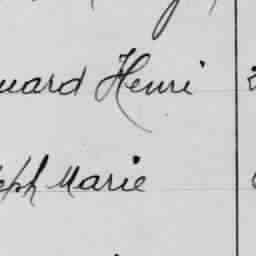 uard Henri
eph Marie